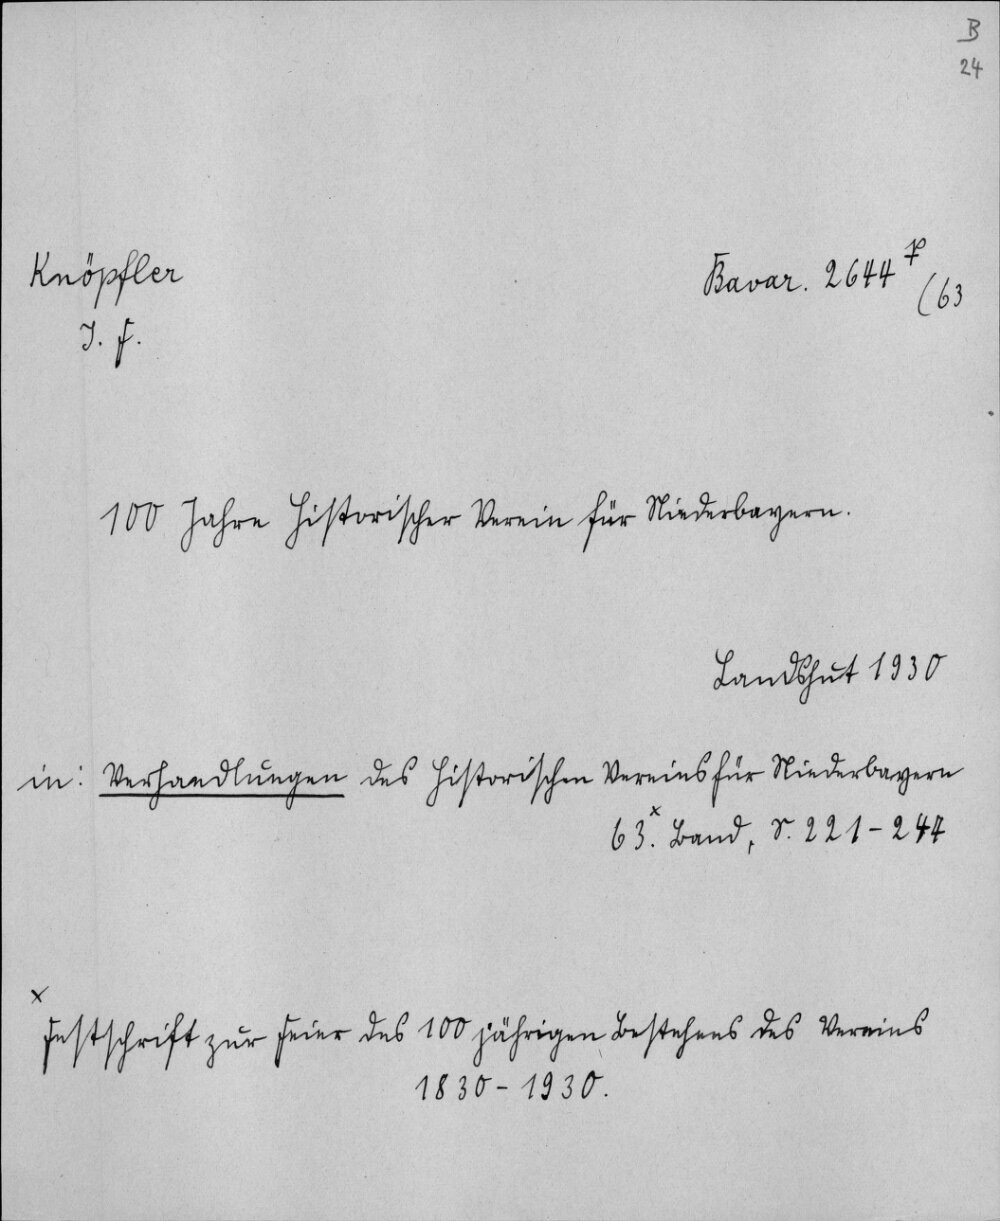 B
24
Knöpfler
J. F.
Bavar. 2644 p
(63
100 Jahre Historischer Verein für Niederbayern.
Landshut 1930
in: Verhandlungen des Historischen Vereins für Niederbayern
63.x Band, S. 221-247
x
Festschrift zur Feier des 100 jährigen Bestehens des Vereins
1830-1930.